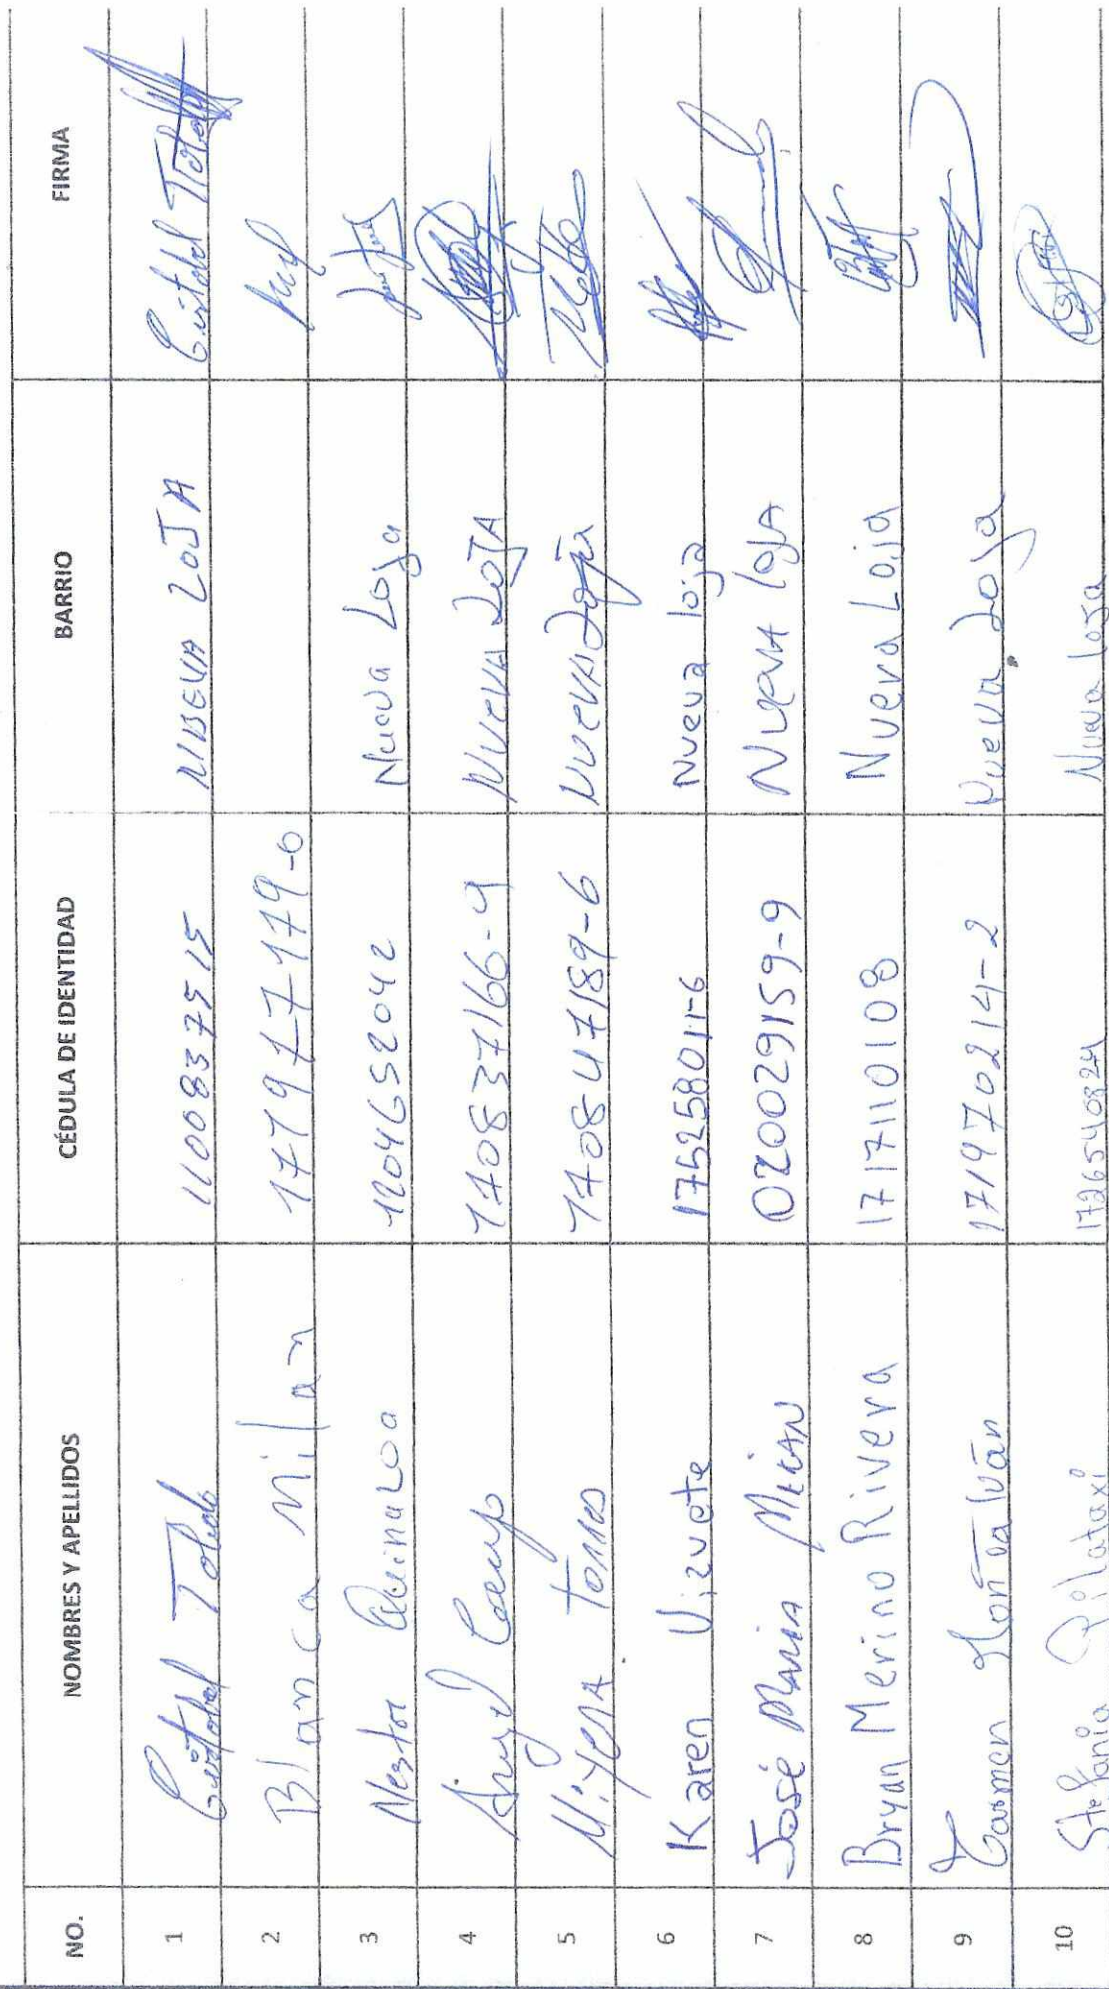 NO. NOMBRES Y APELLIDOS CÉDULA DE IDENTIDAD BARRIO FIRMA
1 Cristobal Toledo 1100837515 NUEVA LOJA Cristobal Toledo
2 Blanca Milan 171917179-0
3 Nestor Quinaloa 1204652042 Nueva Loja
4 Angel 170837166-4 NUEVA LOJA
5 Torres 170847189-6 NUEVA Loja
6 Karen Vizuete 175258011-6 Nueva loja
7 José MARIA MICAN 020029159-9 NUEVA LOJA
8 Bryan Merino Rivera 1717110108 Nueva Loja
9 Carmen Montalván 171970214-2 Nueva Loja
10 Stefania Pilataxi 1726540824 Nueva Loja